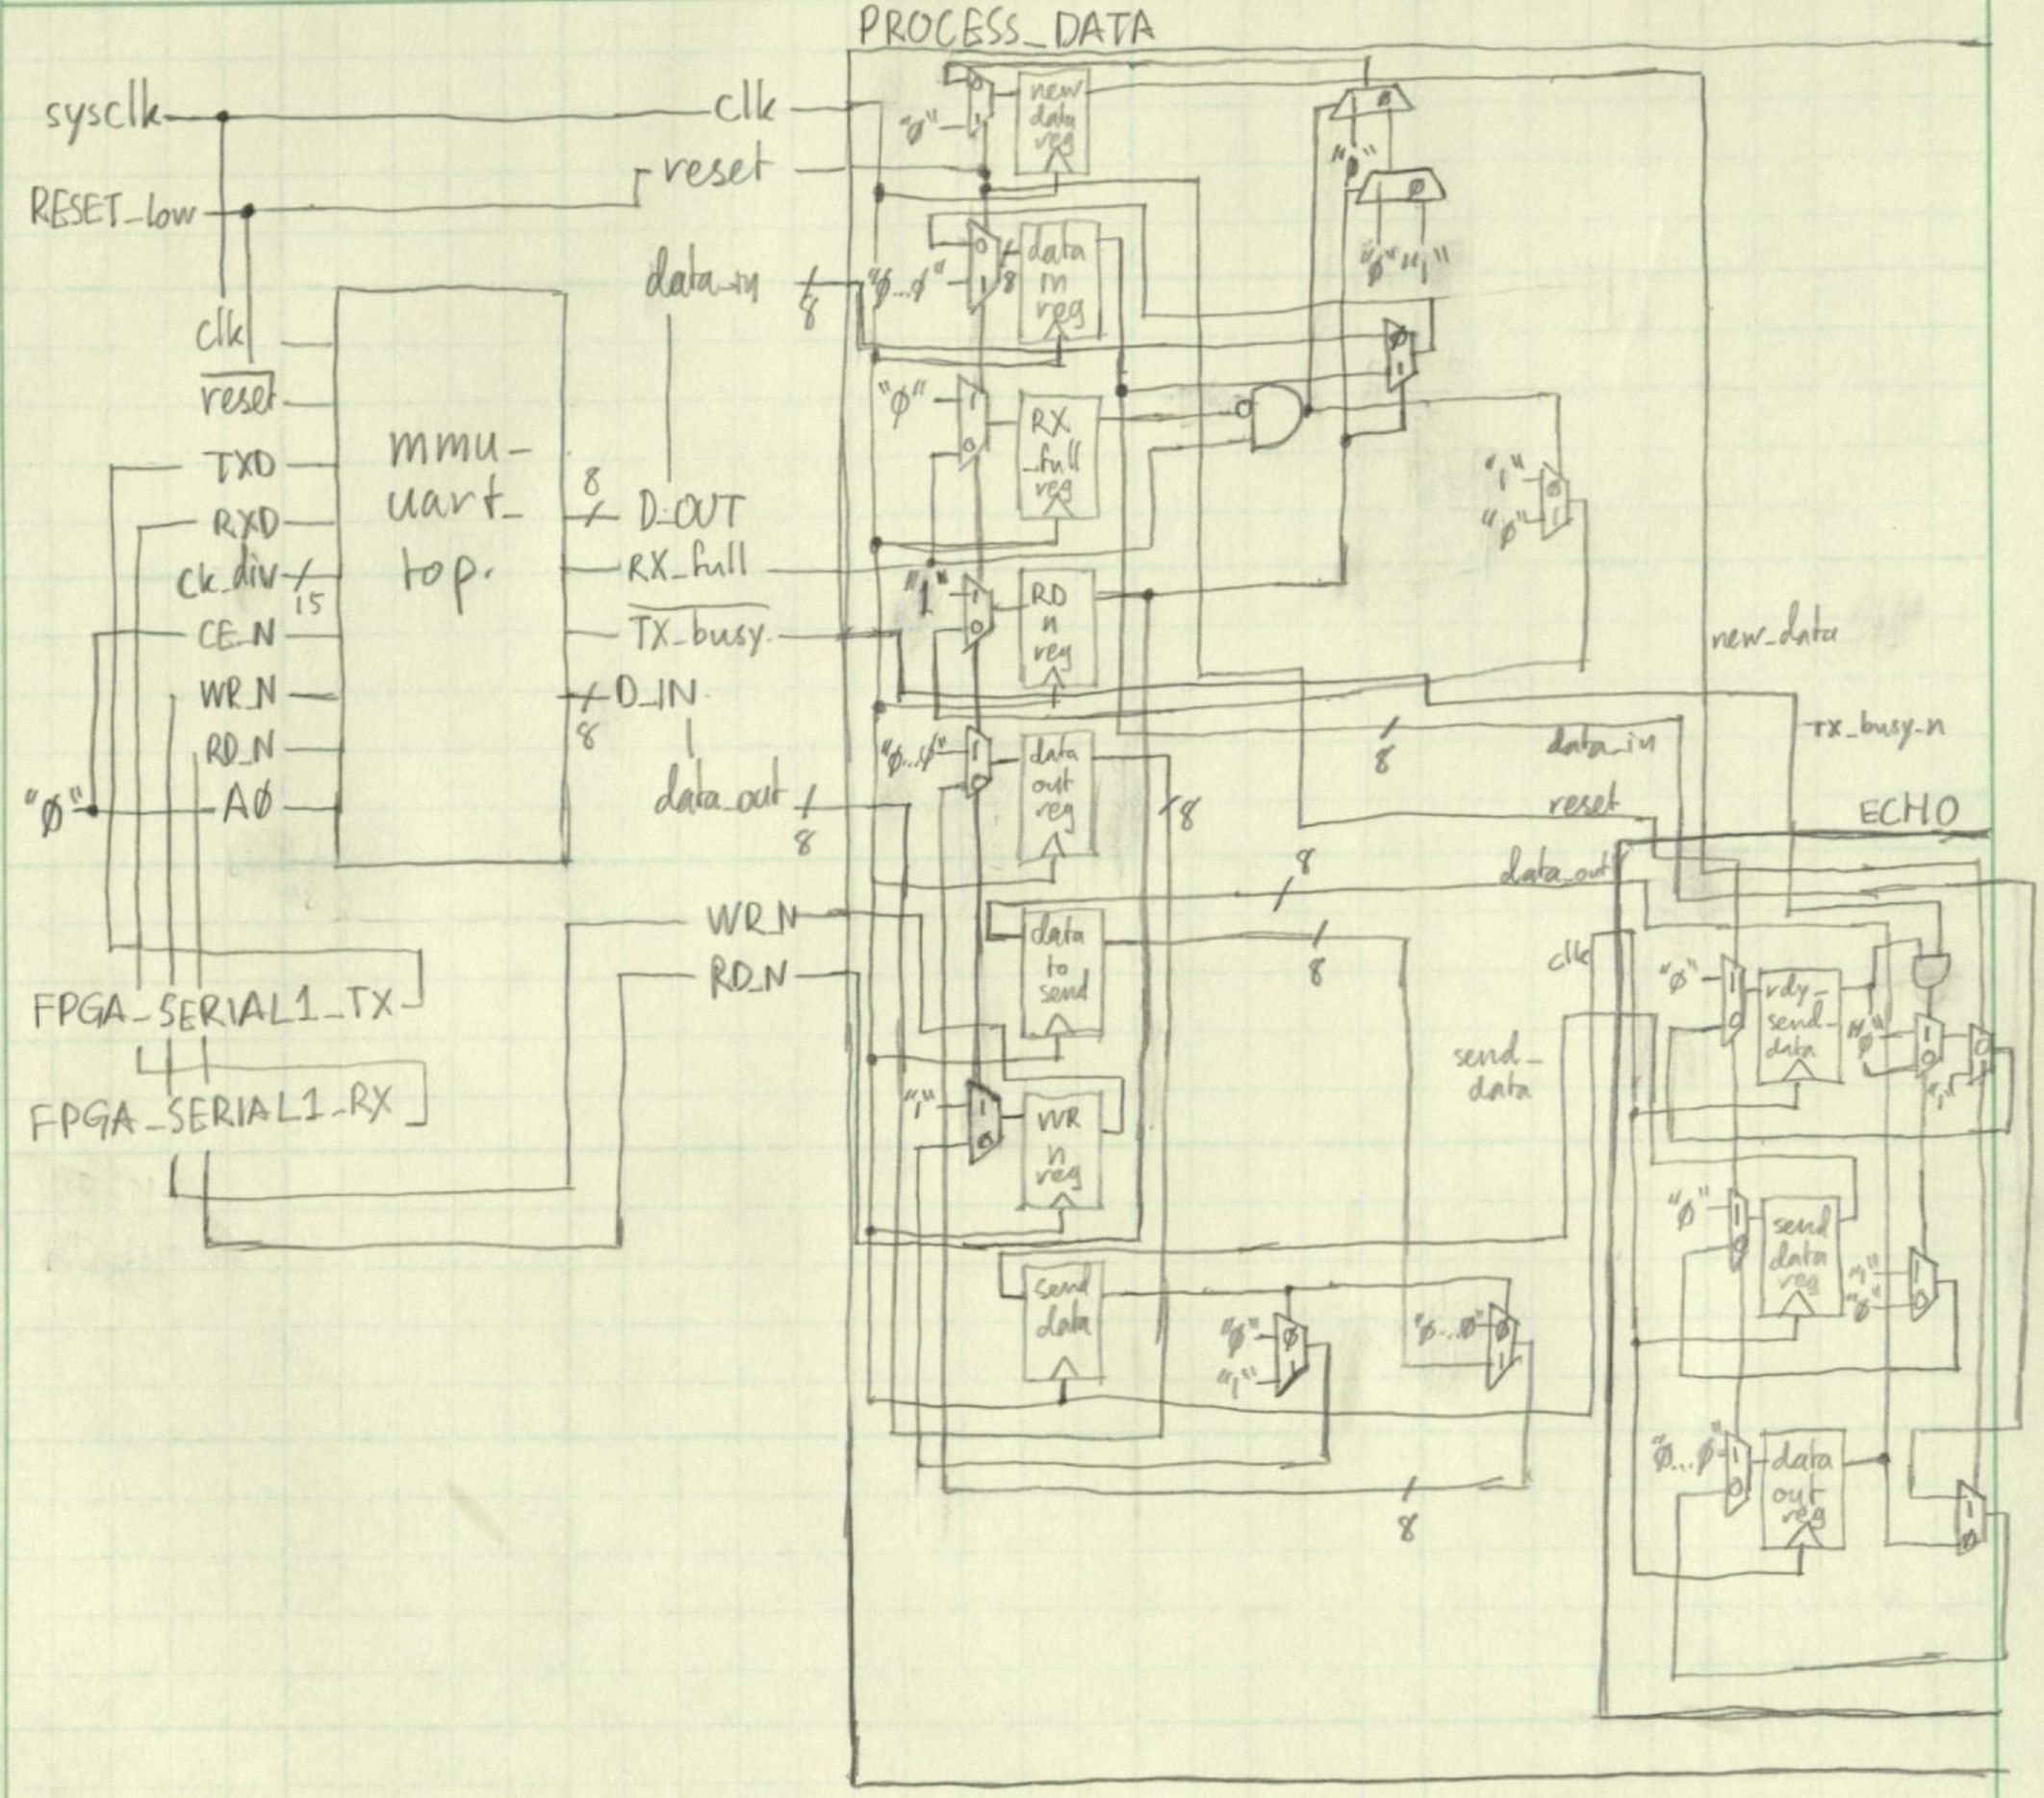 PROCESS_DATA
sysclk
clk
RESET_low
reset
data_in
8
clk
reset
TXD
RXD
ck_div
15
CE_N
WR_N
RD_N
"Ø"
AØ
mmu_
uart_
top.
8
D_OUT
RX_full
TX_busy
D_IN
8
data_out
8
WR_N
RD_N
FPGA_SERIAL1_TX
FPGA_SERIAL1_RX
"Ø"
0
1
new
data
reg
"Ø...Ø"
0
1
8
data
in
reg
"Ø"
1
0
RX
_full
reg
"1"
1
0
RD
n
reg
"Ø...Ø"
1
0
data
out
reg
8
data
to
send
"1"
1
0
WR
n
reg
send
data
Ø
"Ø"
Ø
"Ø"
"1"
Ø
1
"1"
"Ø"
Ø
1
new_data
tx_busy_n
8
data_in
reset
ECHO
8
data_out
8
clk
send_
data
"Ø"
"1"
Ø
1
"Ø...Ø"
Ø
1
8
"Ø"
1
0
rdy_
send_
data
"Ø"
1
0
0
"1"
"Ø"
1
0
send
data
reg
"1"
"Ø"
1
0
"Ø...Ø"
1
0
data
out
reg
1
Ø